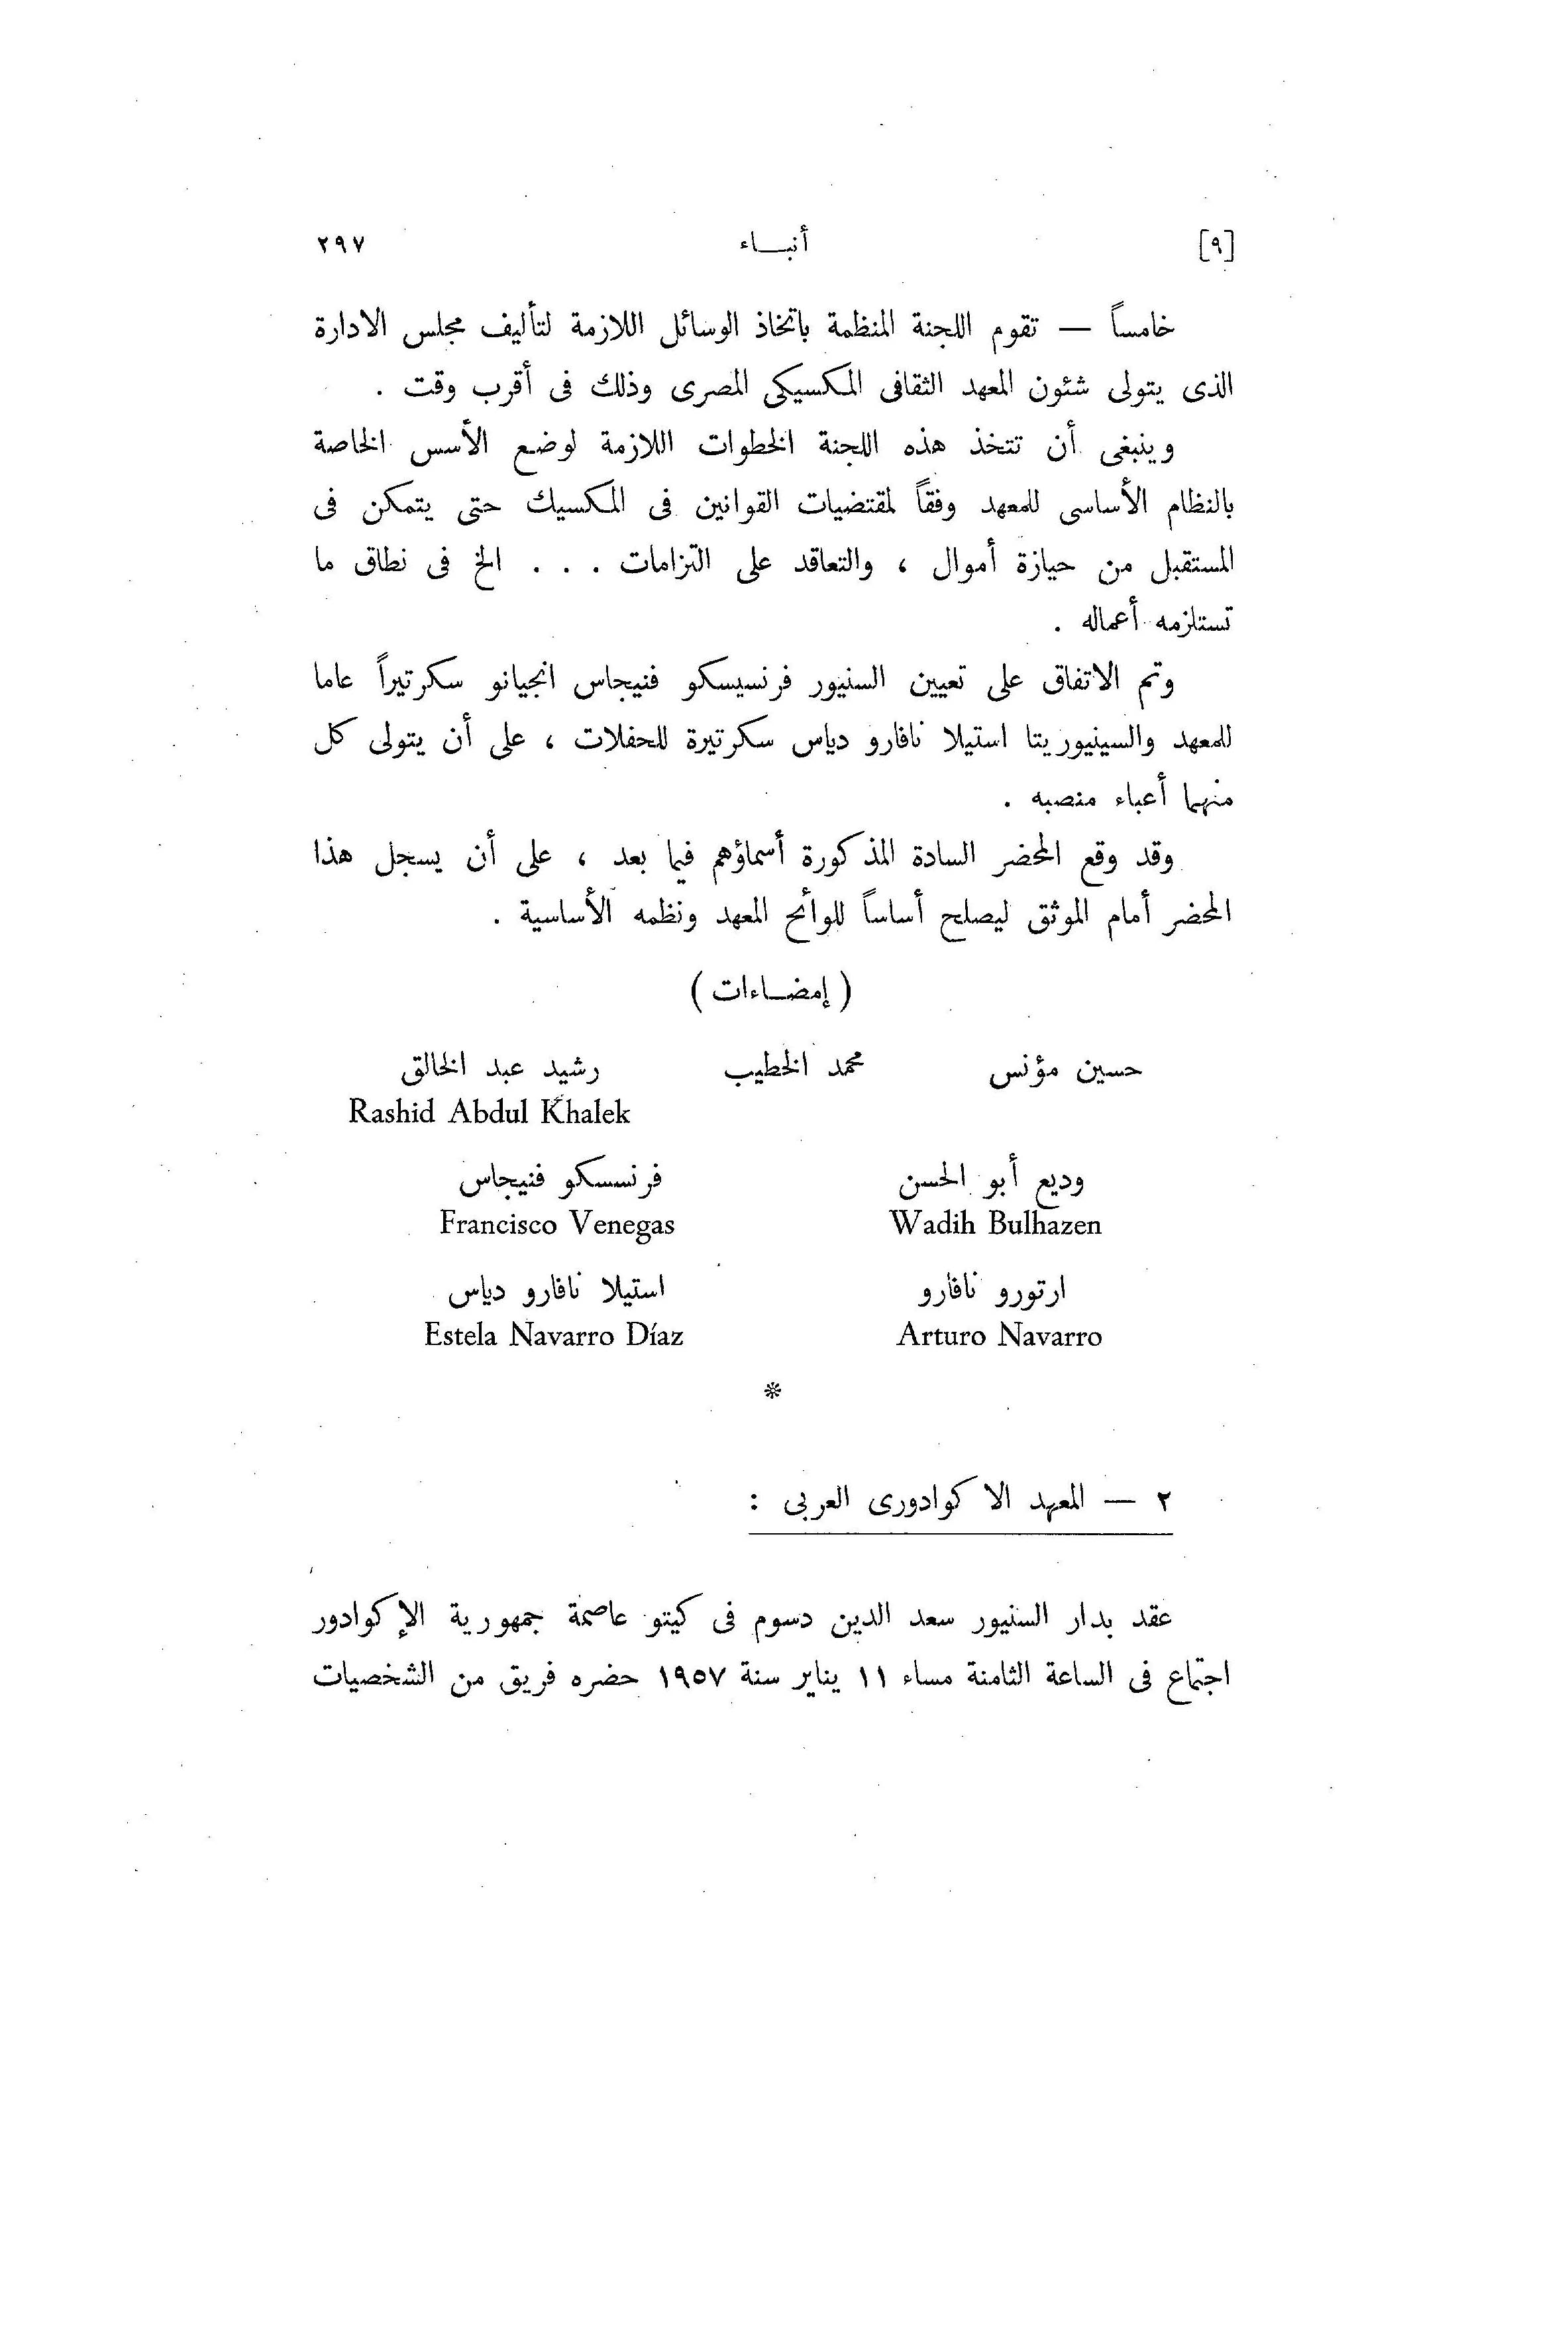 [٩] أنبـــاء ٢٩٧
خامساً — تقوم اللجنة المنظمة باتخاذ الوسائل اللازمة لتأليف مجلس الادارة
الذى يتولى شئون المعهد الثقافى المكسيكى المصرى وذلك فى أقرب وقت .
وينبغى أن تتخذ هذه اللجنة الخطوات اللازمة لوضع الأسس الخاصة
بالنظام الأساسى للمعهد وفقاً لمقتضيات القوانين فى المكسيك حتى يتمكن فى
المستقبل من حيازة أموال ، والتعاقد على التزامات . . . الخ فى نطاق ما
تستلزمه أعماله .
وتم الاتفاق على تعيين السنيور فرنسيسكو فنيجاس انجيانو سكرتيراً عاما
للمعهد والسينيوريتا استيلا نافارو دياس سكرتيرة للحفلات ، على أن يتولى كل
منهما أعباء منصبه .
وقد وقع المحضر السادة المذكورة أسماؤهم فيما بعد ، على أن يسجل هذا
المحضر أمام الموثق ليصلح أساساً للوائح المعهد ونظمه الأساسية .
( إمضـاءات )
حسين مؤنس محمد الخطيب رشيد عبد الخالق
Rashid Abdul Khalek
وديع أبو الحسن فرنسسكو فنيجاس
Wadih Bulhazen Francisco Venegas
ارتورو نافارو استيلا نافارو دياس
Arturo Navarro Estela Navarro Díaz
*
٢ — المعهد الاكوادورى العربى :
عقد بدار السنيور سعد الدين دسوم فى كيتو عاصمة جمهورية الإكوادور
اجتماع فى الساعة الثامنة مساء ١١ يناير سنة ١٩٥٧ حضره فريق من الشخصيات